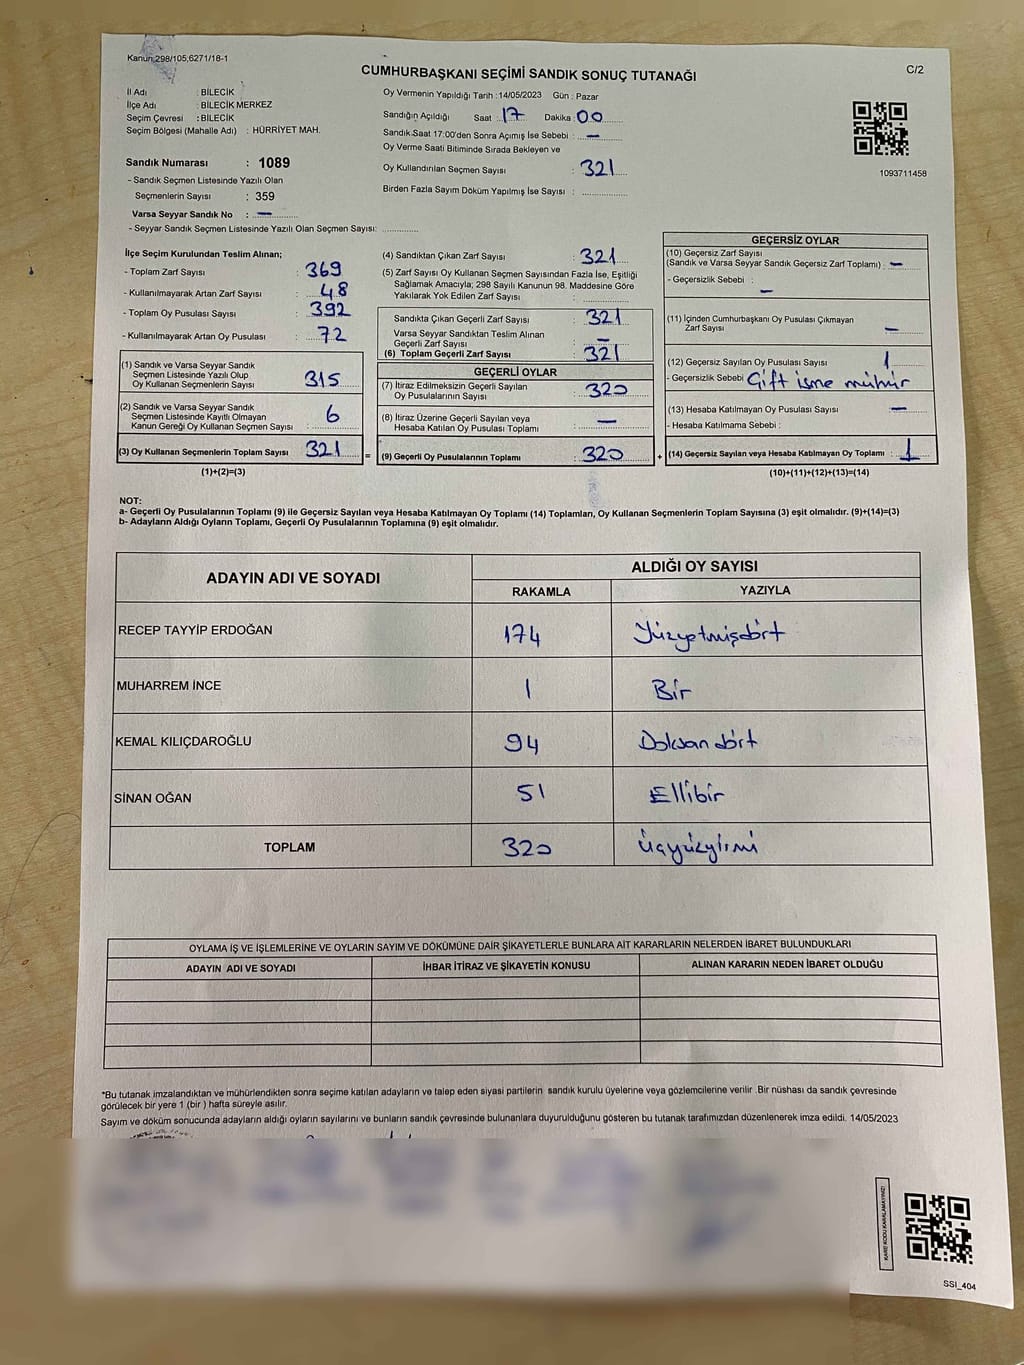 Kanun:298/105;6271/18-1
CUMHURBAŞKANI SEÇİMİ SANDIK SONUÇ TUTANAĞI
C/2
İl Adı : BİLECİK
İlçe Adı : BİLECİK MERKEZ
Seçim Çevresi : BİLECİK
Seçim Bölgesi (Mahalle Adı) : HÜRRİYET MAH.
Sandık Numarası : 1089
- Sandık Seçmen Listesinde Yazılı Olan
Seçmenlerin Sayısı : 359
Varsa Seyyar Sandık No : —
- Seyyar Sandık Seçmen Listesinde Yazılı Olan Seçmen Sayısı:
Oy Vermenin Yapıldığı Tarih :14/05/2023 Gün : Pazar
Sandığın Açıldığı Saat : 17 Dakika : 00
Sandık Saat 17:00'den Sonra Açımış İse Sebebi : —
Oy Verme Saati Bitiminde Sırada Bekleyen ve
Oy Kullandırılan Seçmen Sayısı : 321
Birden Fazla Sayım Döküm Yapılmış İse Sayısı :
1093711458
İlçe Seçim Kurulundan Teslim Alınan;
- Toplam Zarf Sayısı : 369
- Kullanılmayarak Artan Zarf Sayısı : 48
- Toplam Oy Pusulası Sayısı : 392
- Kullanılmayarak Artan Oy Pusulası : 72
(1) Sandık ve Varsa Seyyar Sandık
Seçmen Listesinde Yazılı Olup
Oy Kullanan Seçmenlerin Sayısı : 315
(2) Sandık ve Varsa Seyyar Sandık
Seçmen Listesinde Kayıtlı Olmayan
Kanun Gereği Oy Kullanan Seçmen Sayısı : 6
(3) Oy Kullanan Seçmenlerin Toplam Sayısı : 321
(1)+(2)=(3)
=
(4) Sandıktan Çıkan Zarf Sayısı : 321
(5) Zarf Sayısı Oy Kullanan Seçmen Sayısından Fazla İse, Eşitliği
Sağlamak Amacıyla; 298 Sayılı Kanunun 98. Maddesine Göre
Yakılarak Yok Edilen Zarf Sayısı :
Sandıkta Çıkan Geçerli Zarf Sayısı : 321
Varsa Seyyar Sandıktan Teslim Alınan
Geçerli Zarf Sayısı : —
(6) Toplam Geçerli Zarf Sayısı : 321
GEÇERLİ OYLAR
(7) İtiraz Edilmeksizin Geçerli Sayılan
Oy Pusulalarının Sayısı : 320
(8) İtiraz Üzerine Geçerli Sayılan veya
Hesaba Katılan Oy Pusulası Toplamı : —
(9) Geçerli Oy Pusulalarının Toplamı : 320
+
GEÇERSİZ OYLAR
(10) Geçersiz Zarf Sayısı
(Sandık ve Varsa Seyyar Sandık Geçersiz Zarf Toplamı) : —
- Geçersizlik Sebebi : —
(11) İçinden Cumhurbaşkanı Oy Pusulası Çıkmayan
Zarf Sayısı : —
(12) Geçersiz Sayılan Oy Pusulası Sayısı : 1
- Geçersizlik Sebebi : Çift isme mühür
(13) Hesaba Katılmayan Oy Pusulası Sayısı : —
- Hesaba Katılmama Sebebi :
(14) Geçersiz Sayılan veya Hesaba Katılmayan Oy Toplamı : 1
(10)+(11)+(12)+(13)=(14)
NOT:
a- Geçerli Oy Pusulalarının Toplamı (9) ile Geçersiz Sayılan veya Hesaba Katılmayan Oy Toplamı (14) Toplamları, Oy Kullanan Seçmenlerin Toplam Sayısına (3) eşit olmalıdır. (9)+(14)=(3)
b- Adayların Aldığı Oyların Toplamı, Geçerli Oy Pusulalarının Toplamına (9) eşit olmalıdır.
ADAYIN ADI VE SOYADI
ALDIĞI OY SAYISI
RAKAMLA YAZIYLA
RECEP TAYYİP ERDOĞAN 174 Yüzyetmişdört
MUHARREM İNCE 1 Bir
KEMAL KILIÇDAROĞLU 94 Doksandört
SİNAN OĞAN 51 Ellibir
TOPLAM 320 Üçyüzyirmi
OYLAMA İŞ VE İŞLEMLERİNE VE OYLARIN SAYIM VE DÖKÜMÜNE DAİR ŞİKAYETLERLE BUNLARA AİT KARARLARIN NELERDEN İBARET BULUNDUKLARI
ADAYIN ADI VE SOYADI İHBAR İTİRAZ VE ŞİKAYETİN KONUSU ALINAN KARARIN NEDEN İBARET OLDUĞU
*Bu tutanak imzalandıktan ve mühürlendikten sonra seçime katılan adayların ve talep eden siyasi partilerin sandık kurulu üyelerine veya gözlemcilerine verilir .Bir nüshası da sandık çevresinde
görülecek bir yere 1 (bir ) hafta süreyle asılır.
Sayım ve döküm sonucunda adayların aldığı oyların sayılarını ve bunların sandık çevresinde bulunanlara duyurulduğunu gösteren bu tutanak tarafımızdan düzenlenerek imza edildi. 14/05/2023
KARE KODU KARALAMAYINIZ!
SSI_404